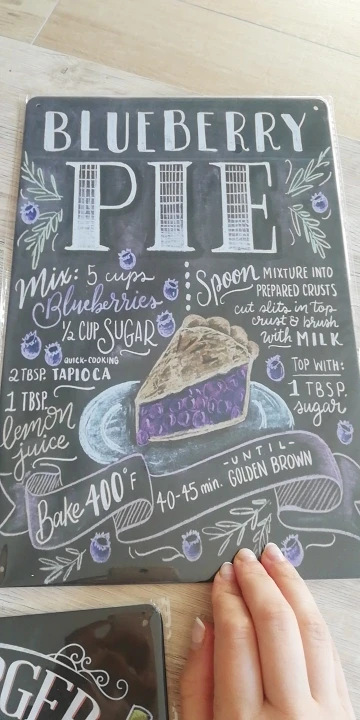 BLUEBERRY
PIE
Mix: 5 cups
Blueberries
½ CUP SUGAR
QUICK-COOKING
2 TBSP. TAPIOCA
1 TBSP.
lemon
juice
Spoon MIXTURE INTO
PREPARED CRUSTS
cut slits in top
crust & brush
with MILK
TOP WITH:
1 TBSP.
sugar
Bake 400°F
40-45 min. -UNTIL-
GOLDEN BROWN